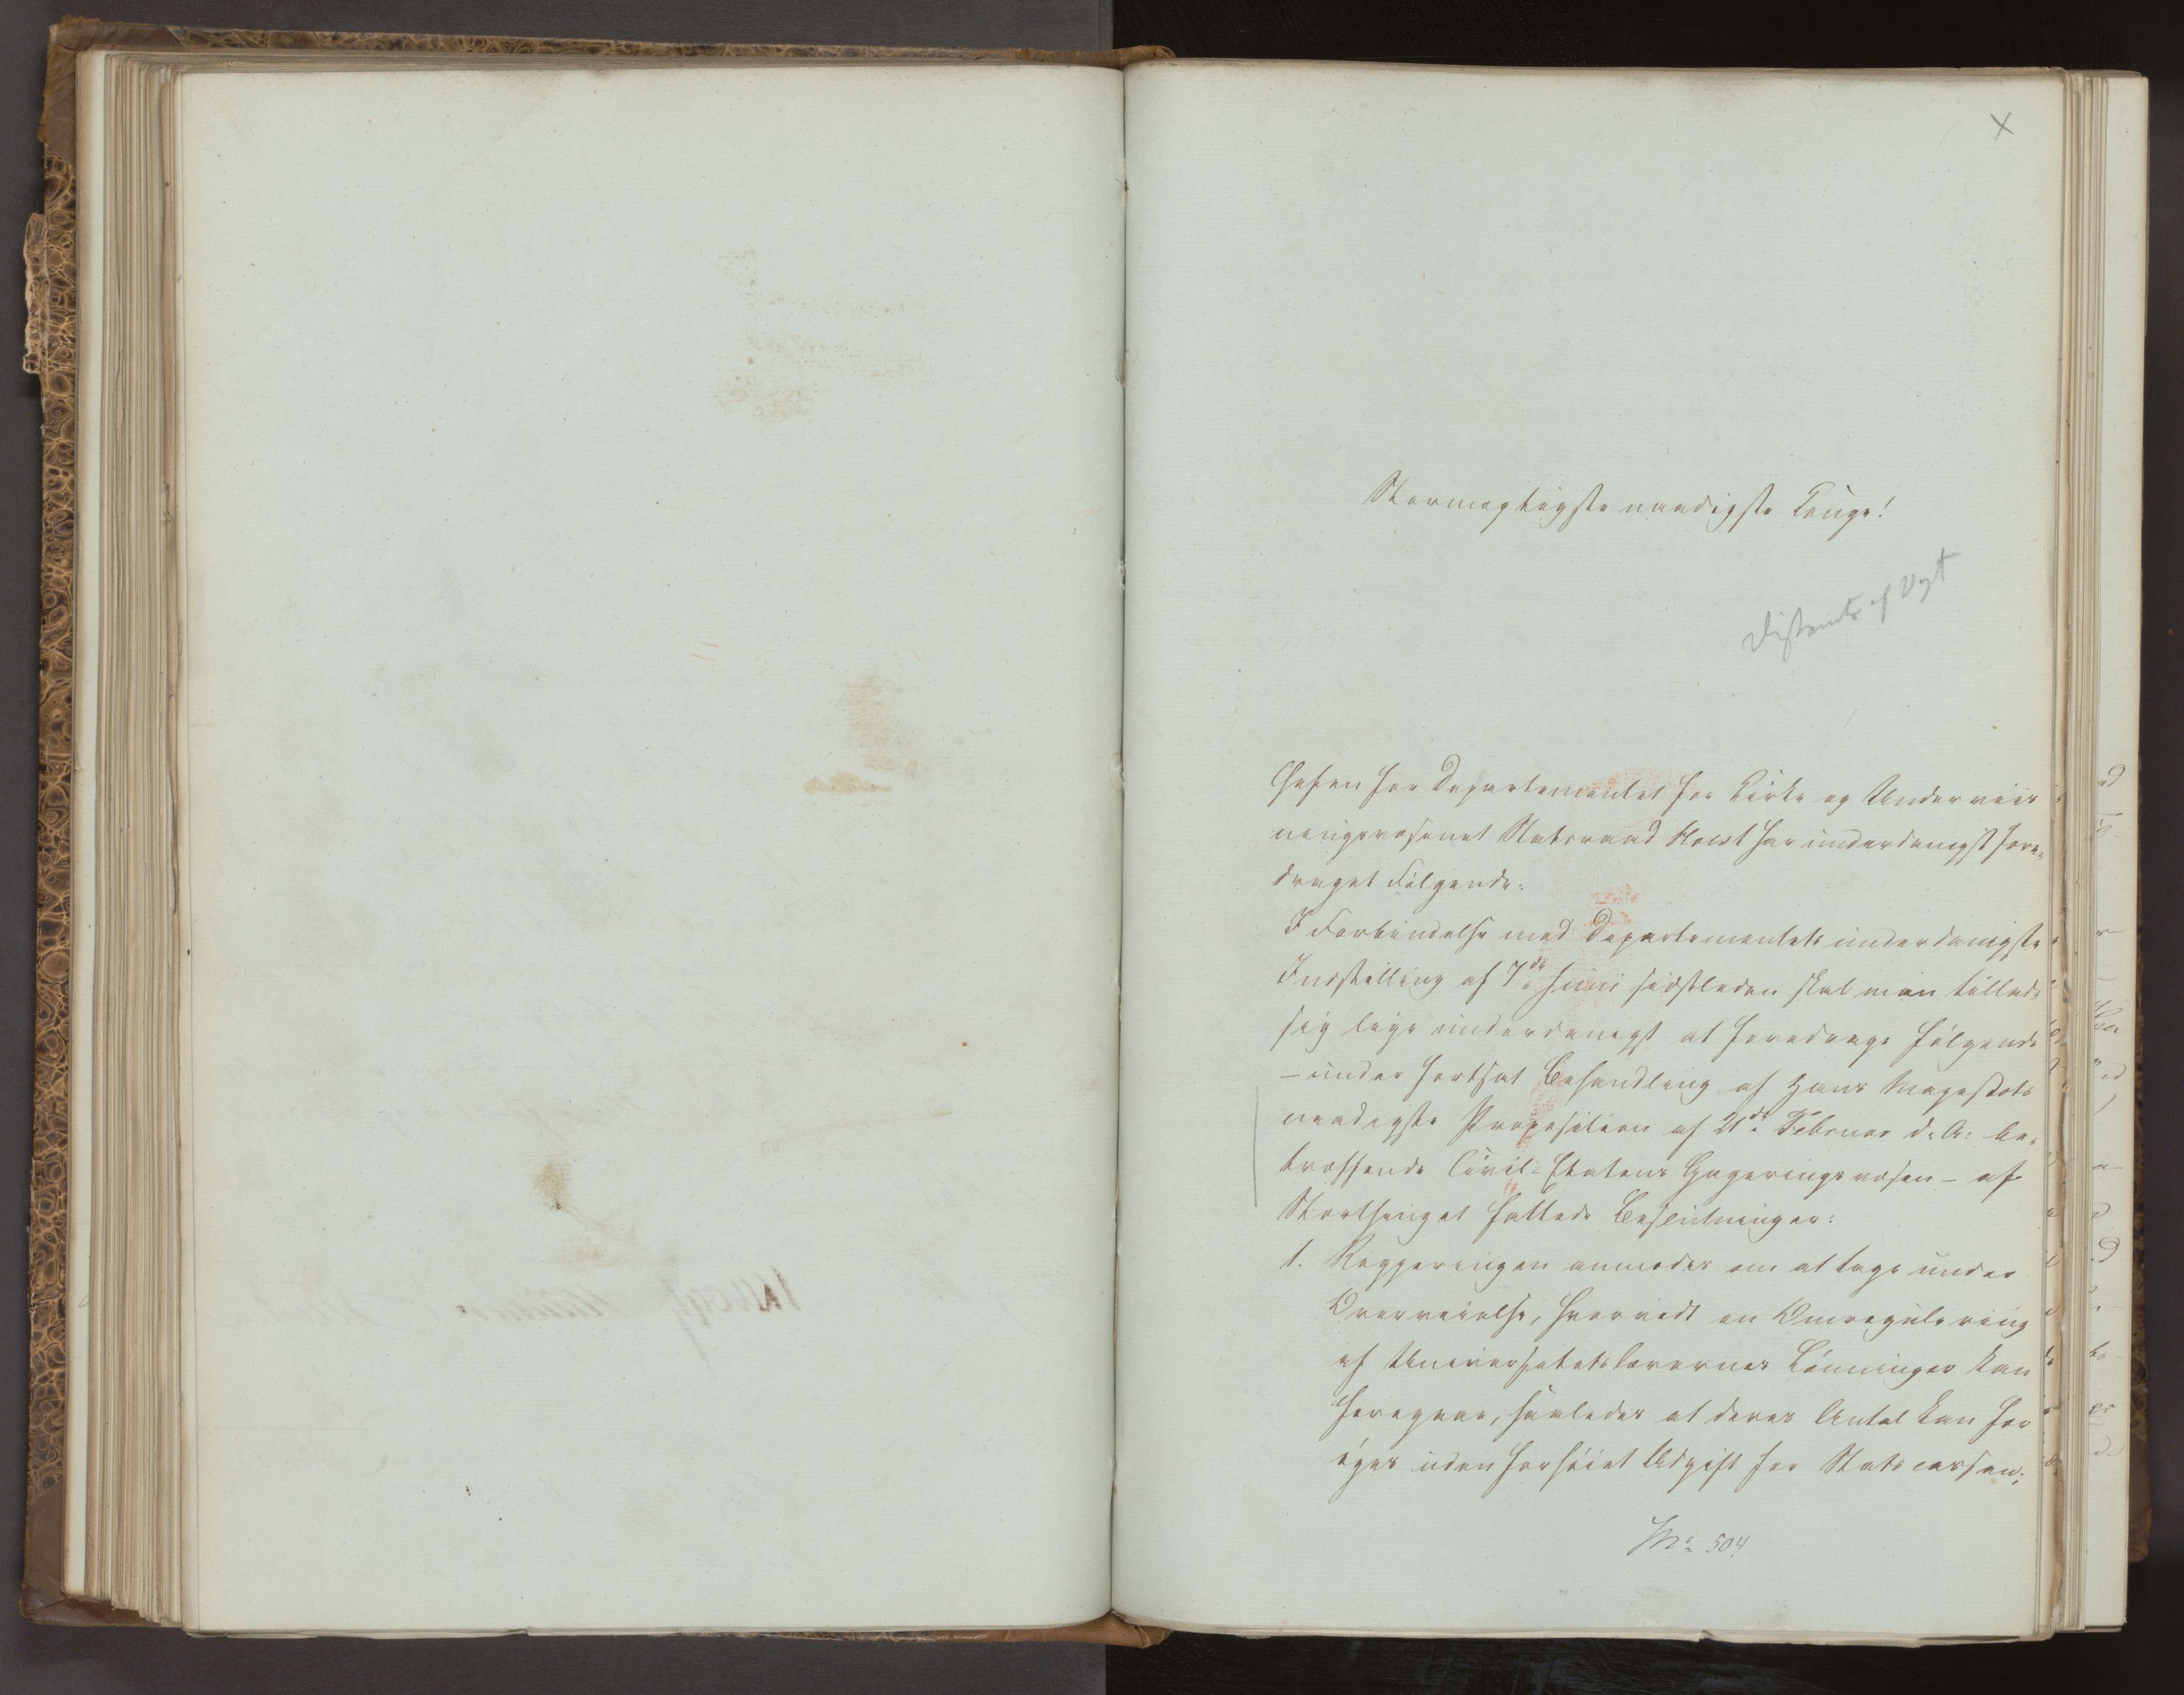 Stormægtigste naadigste Konge!
af Vogt
Chefen for Departementet for Kirke og Underviis
ningsvæsenet Statsraad Holst har underdanigst fore-
draget Følgende:
I Forbindelse med Departementets underdanigste
Indstilling af 7de Juni sidstleden skal man tillade
sig lige underdanigst at foredrage følgende
– under fortsat Behandling af Hans Majestæts
naadigste Proposition af 21de Februar d: A: be-
træffende Civil-Etatens Gageringsvæsen – af
Storthinget fattede Beslutninger:
1. Regjeringen anmodes om at tage under
Overveielse, hvorvidt en Omregulering
af Universitetslærernes Lønninger kan
foregaae, saaledes at deres Antal kan for
øges uden forhøiet Udgift for Statscassen;
No 504